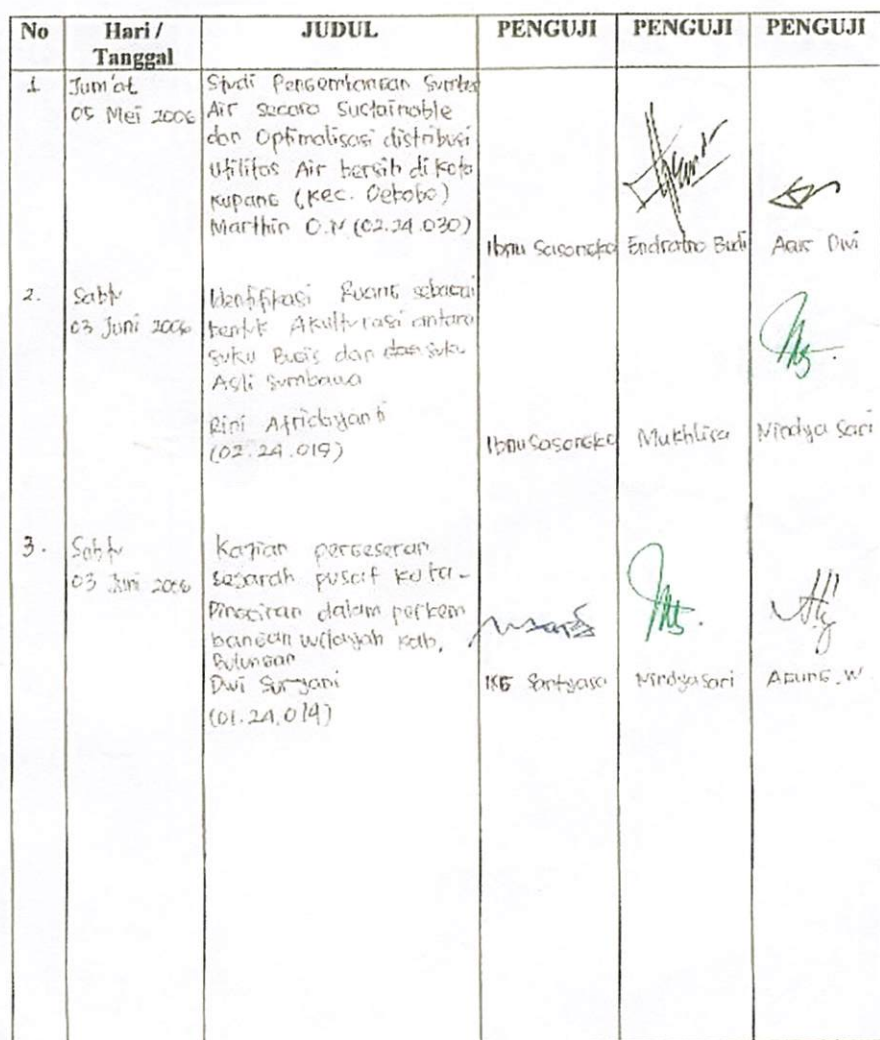 No Hari / Tanggal JUDUL PENGUJI PENGUJI PENGUJI
1 Jum'at
05 Mei 2006
Studi Pengembangan Sumber
Air secara Sustainable
dan Optimalisasi distribusi
utilitas Air bersih di Kota
Kupang (Kec. Oebobo)
Marthin O.N (02.24.030)
Ibnu Sasongko Endratno Budi Agus Dwi
2. Sabtu
03 Juni 2006
Identifikasi Ruang sebagai
bentuk Akulturasi antara
suku Bugis dan dan suku
Asli Sumbawa
Rini Afridayanti
(02.24.019)
Ibnu Sasongko Mukhlisa Nindya Sari
3. Sabtu
03 Juni 2006
Kajian pergeseran
sejarah pusat kota -
dalam perkem
bangan wilayah kab.
Bulungan
Dwi Suryani
(01.24.014)
Santyasa Nindya Sari Agung.W